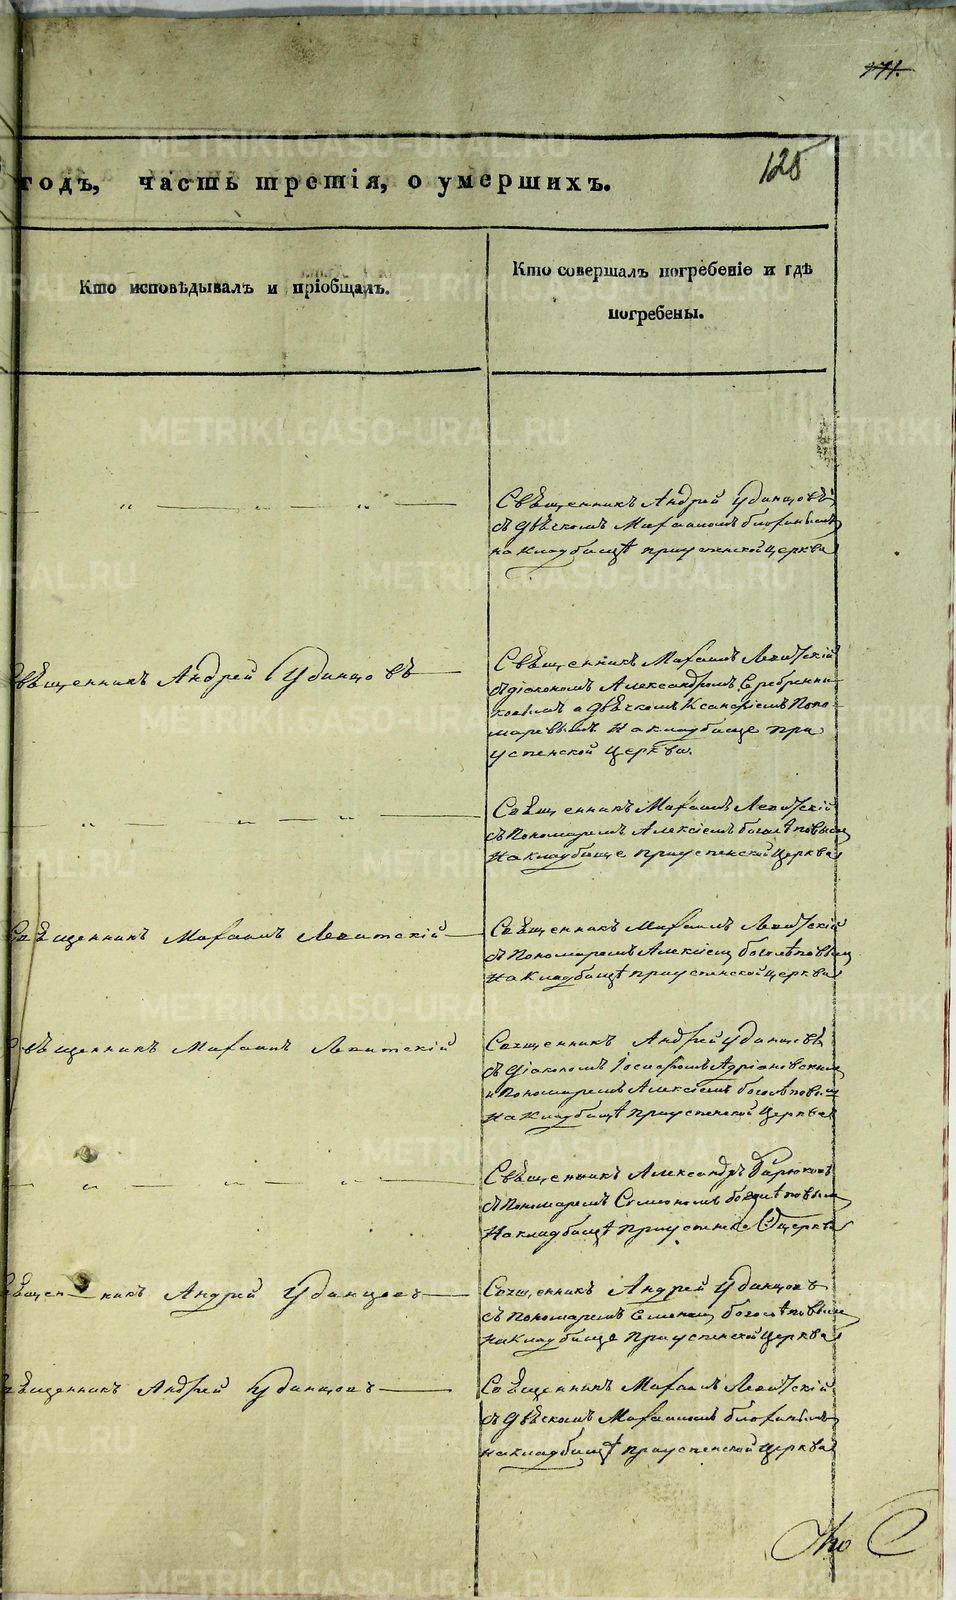 171.
125
годъ, часть третія, о умершихъ.
Кто исповѣдывалъ и пріобщалъ.
Кто совершалъ погребеніе и гдѣ
погребены.
Священникъ Андрей Удинцовъ
съ Дьячкомъ
на кладбищѣ при успенской церкви
Священникъ Андрей Удинцовъ
Священникъ Михаилъ Левитскій
съ діакономъ Александромъ Серебренни-
ковымъ и Дьячкомъ Ксанфіемъ Поно-
маревымъ на кладбище при
успенской церкви.
Священникъ Михаилъ Левитскій
съ Пономаремъ Алексіемъ боголѣповымъ
На кладбище при успенской церкви
Священникъ Михаилъ Левитскій
Священникъ Михаилъ Левитскій
съ Пономаремъ Алексіемъ боголѣповым
На кладбищѣ при успенской церкви
Священникъ Михаилъ Левитскій
Священникъ Андрей Удинцовъ
съ Діакономъ Іосафомъ Адріановскимъ
и Пономаремъ Алексіемъ боголѣповым
На кладбищѣ при успенской Церкви
Священникъ Александръ
съ Пономаремъ Симеономъ боголѣповым
На кладбищѣ при успенской церкви
Священникъ Андрей Удинцовъ
Священникъ Андрей Удинцовъ
съ пономаремъ Семеномъ боголѣповым
на кладбище при успенской Церкви
Священникъ Андрей Удинцовъ
Священникъ Михаилъ Левитскій
съ Дьячкомъ
на кладбищѣ при успенской Церкви
METRIKI.GASO-URAL.RU